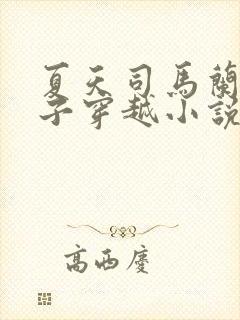 夏天司馬蘭
子穿越小說
高西慶